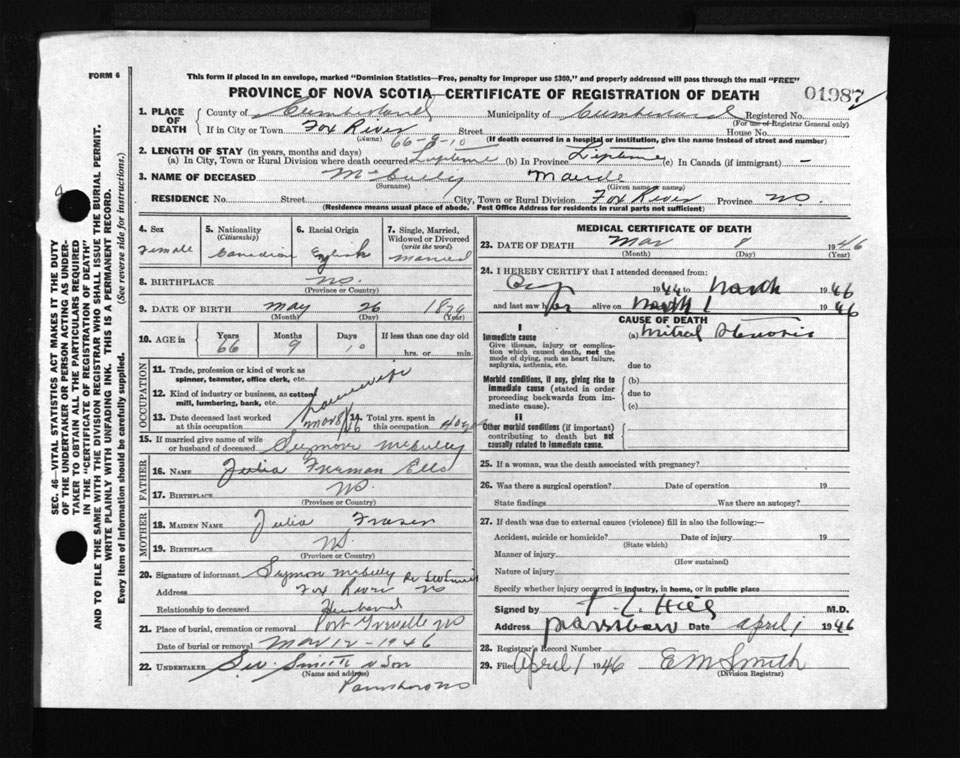 FORM 6
This form if placed in an envelope, marked "Dominion Statistics—Free, penalty for improper use $300," and properly addressed will pass through the mail "FREE"
PROVINCE OF NOVA SCOTIA—CERTIFICATE OF REGISTRATION OF DEATH
01987
1. PLACE OF DEATH
County of Cumberland Municipality of Cumberland Registered No.
(For use of Registrar General only)
If in City or Town Fox River Street House No.
(Name) (If death occurred in a hospital or institution, give the name instead of street and number)
66-9-10
2. LENGTH OF STAY (in years, months and days)
(a) In City, Town or Rural Division where death occurred Lifetime (b) In Province Lifetime (c) In Canada (if immigrant) -
3. NAME OF DECEASED McCully Maude
(Surname) (Given name or names)
RESIDENCE No. Street City, Town or Rural Division Fox River Province NS.
(Residence means usual place of abode. Post Office Address for residents in rural parts not sufficient)
4. Sex Female
5. Nationality (Citizenship) Canadian
6. Racial Origin English
7. Single, Married, Widowed or Divorced (write the word) Married
8. BIRTHPLACE NS.
(Province or Country)
9. DATE OF BIRTH May 26 1879
(Month) (Day) (Year)
10. AGE in Years 66 Months 9 Days 10 If less than one day old hrs. or min.
OCCUPATION
11. Trade, profession or kind of work as spinner, teamster, office clerk, etc.
12. Kind of industry or business, as cotton mill, lumbering, bank, etc.
housewife
13. Date deceased last worked at this occupation Mar 8/46
14. Total yrs. spent in this occupation
15. If married give name of wife or husband of deceased Seymore McCully
FATHER
16. NAME Freeman
17. BIRTHPLACE NS.
(Province or Country)
MOTHER
18. MAIDEN NAME Julia Fraser
19. BIRTHPLACE NS.
(Province or Country)
20. Signature of informant Seymon McCully
Address Fox River NS
Relationship to deceased Husband
21. Place of burial, cremation or removal Port Greville NS
Date of burial or removal Mar 12-1946
22. UNDERTAKER Smith & Son
(Name and address)
Parrsboro NS
MEDICAL CERTIFICATE OF DEATH
23. DATE OF DEATH Mar 8 1946
(Month) (Day) (Year)
24. I HEREBY CERTIFY that I attended deceased from:
1944 to March 1946
and last saw her alive on March 1 1946
CAUSE OF DEATH
I
Immediate cause
Give disease, injury or complication which caused death, not the mode of dying, such as heart failure, asphyxia, asthenia, etc.
(a) Mitral Stenosis
due to
Morbid conditions, if any, giving rise to immediate cause (stated in order proceeding backwards from immediate cause).
(b)
due to
(c)
II
Other morbid conditions (if important) contributing to death but not causally related to immediate cause.
25. If a woman, was the death associated with pregnancy?
26. Was there a surgical operation? Date of operation 19
State findings Was there an autopsy?
27. If death was due to external causes (violence) fill in also the following:—
Accident, suicide or homicide? Date of injury 19
(State which)
Manner of injury
(How sustained)
Nature of injury
Specify whether injury occurred in industry, in home, or in public place
Signed by M.D.
Address Parrsboro Date April 1 1946
28. Registrar's Record Number
29. Filed April 1 1946 E M Smith
(Division Registrar)
SEC. 46—VITAL STATISTICS ACT MAKES IT THE DUTY
OF THE UNDERTAKER OR PERSON ACTING AS UNDER-
TAKER TO OBTAIN ALL THE PARTICULARS REQUIRED
IN THE "CERTIFICATE OF REGISTRATION OF DEATH"
AND TO FILE THE SAME WITH THE DIVISION REGISTRAR WHO SHALL ISSUE THE BURIAL PERMIT.
WRITE PLAINLY WITH UNFADING INK. THIS IS A PERMANENT RECORD.
Every item of information should be carefully supplied. (See reverse side for instructions.)